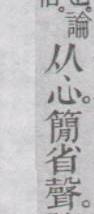 論
从心。簡省聲。